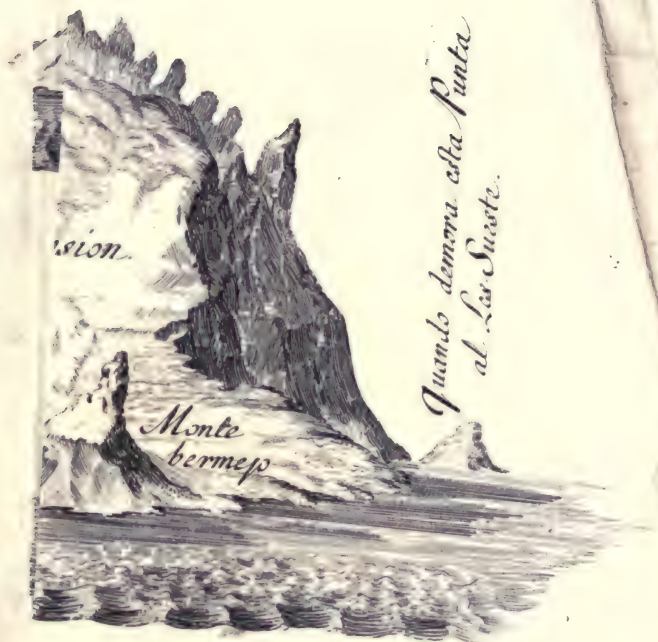 sion.
Monte
bermejo
Quando demora esta Punta
al Les Sueste.